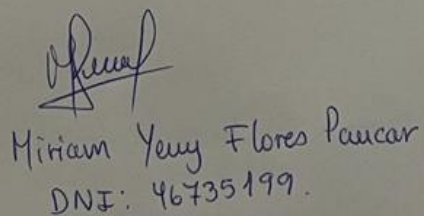 Miriam Yeny Flores Paucar
DNI: 46735199.